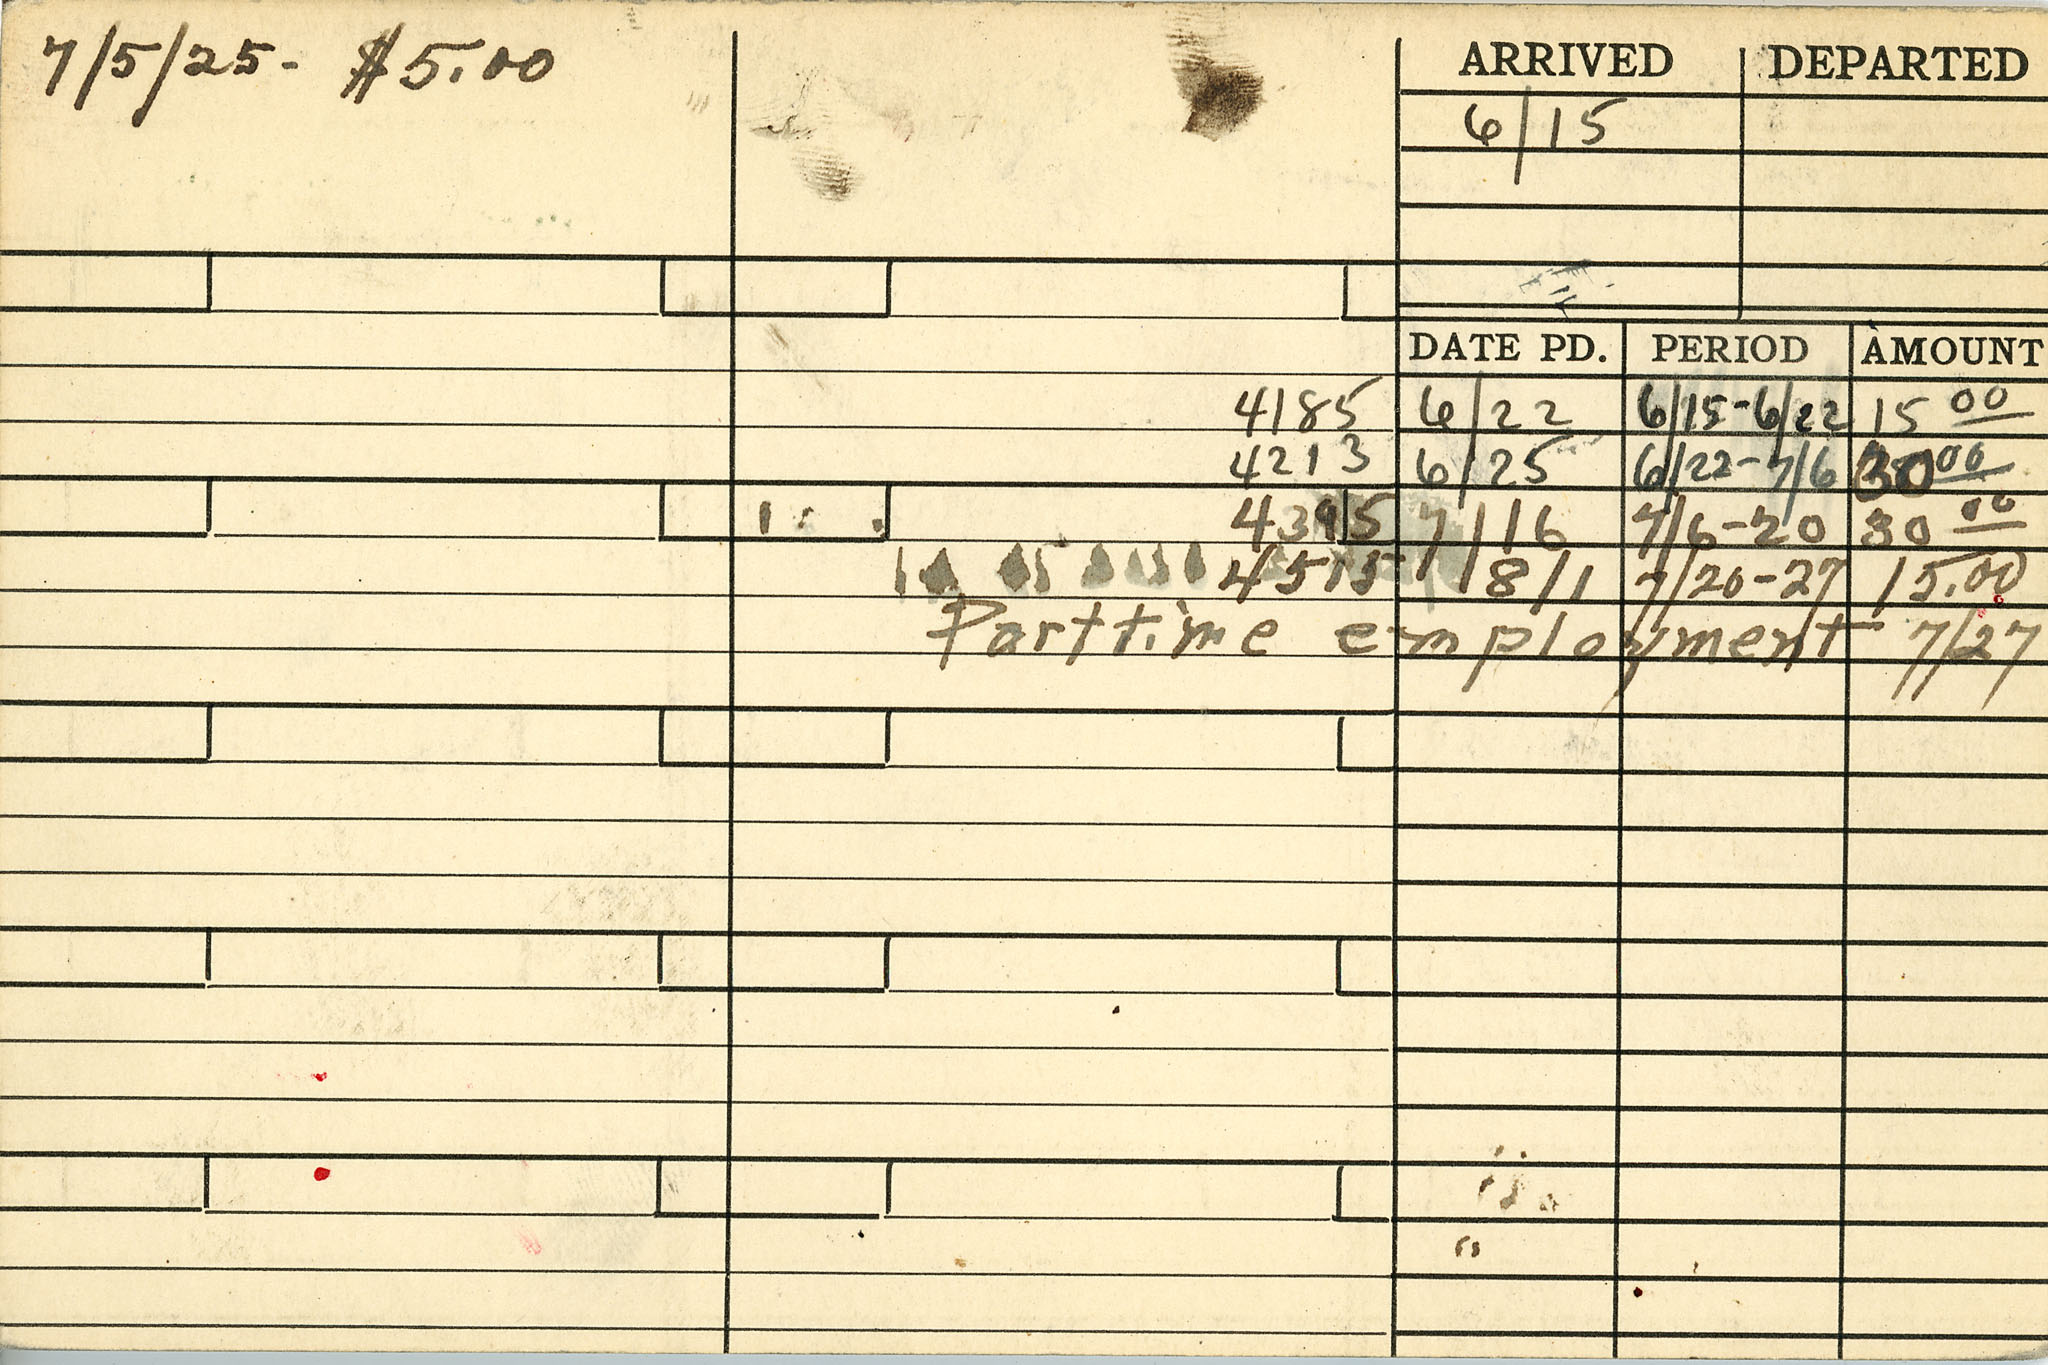 7/5/25- $5.00
ARRIVED DEPARTED
6/15
DATE PD. PERIOD AMOUNT
4185 6/22 6/15-6/22 15 00
4213 6/25 6/22-7/6 30 00
4395 7/16 7/6-20 30 00
4515 8/1 7/20-27 15.00
Parttime employment 7/27